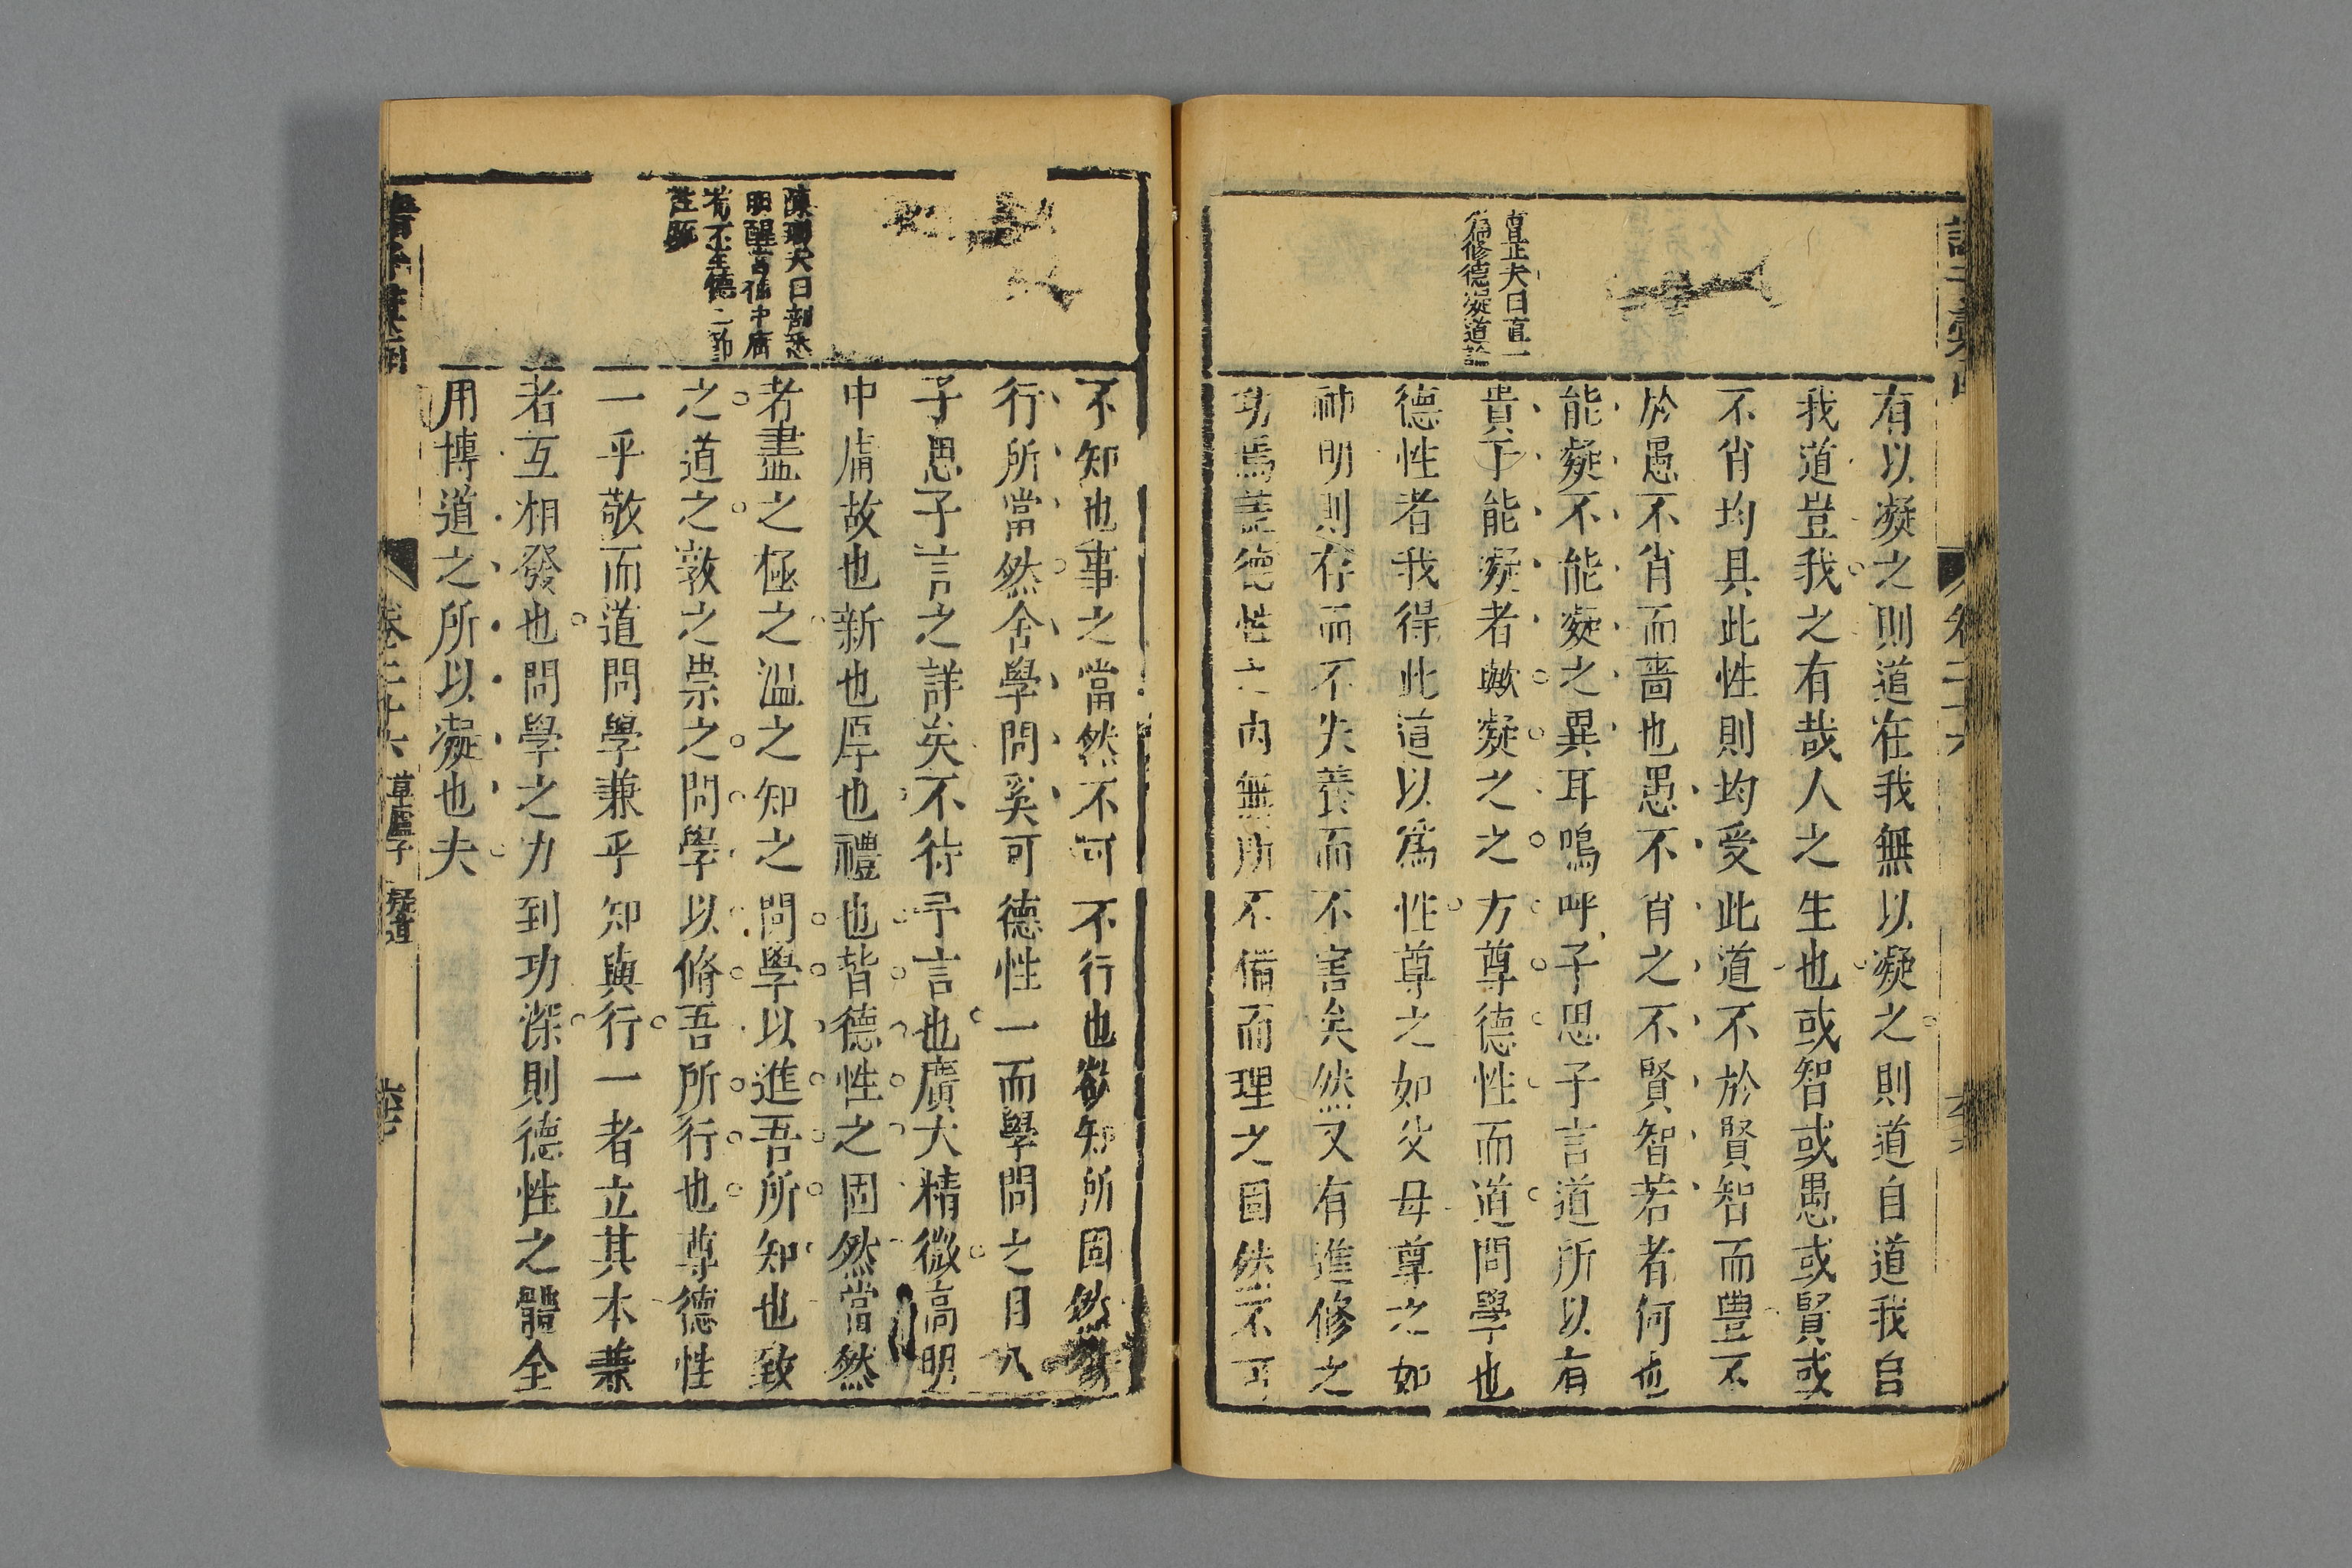 曹正夫曰直一
爲修德凝道詮
有以凝之則道在我無以凝之則道自道我自
我道豈我之有哉人之生也或智或愚或賢或
不肖均具此性則均受此道不於賢智而豐不
於愚不肖而嗇也愚不肖之不賢智若者何也
能凝不能凝之異耳嗚呼子思子言道所以有
貴于能凝者歟凝之之方尊德性而道問學也
德性者我得此道以爲性尊之如父母尊之如
神明則存而不失養而不害矣然又有進修之
功焉蓋德性之內無所不備而理之固然不可
陳明夫曰剖悉
明醒言在中庸
不
二節
不知也事之當然不可不行也欲知所固然欲
行所當然舍學問奚可德性一而學問之目八
子思子言之詳矣不待予言也廣大精微高明
中庸故也新也厚也禮也皆德性之固然當然
者盡之極之溫之知之問學以進吾所知也致
之道之敦之崇之問學以脩吾所行也尊德性
一乎敬而道問學兼乎知與行一者立其本兼
者互相發也問學之力到功深則德性之體全
用博道之所以凝也夫
卷二十六 草廬子 凝道